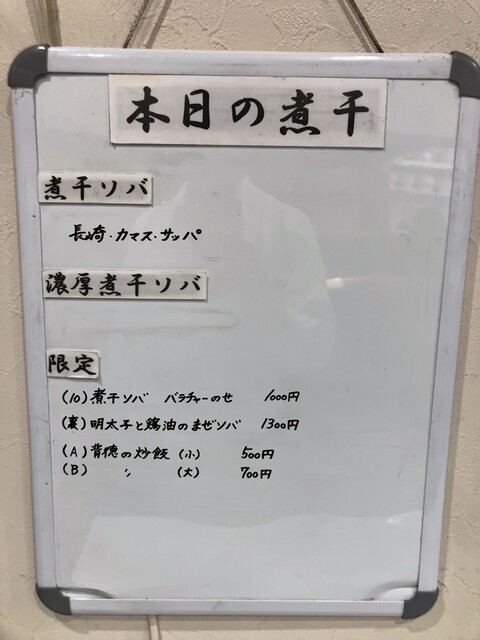 本日の煮干
煮干ソバ
長崎・カマス・サッパ
濃厚煮干ソバ
限定
(10) 煮干ソバ バラチャーのせ 1000円
(裏) 明太子と鶏油のまぜソバ 1300円
(A) 背徳の炒飯 (小) 500円
(B) 〃 (大) 700円